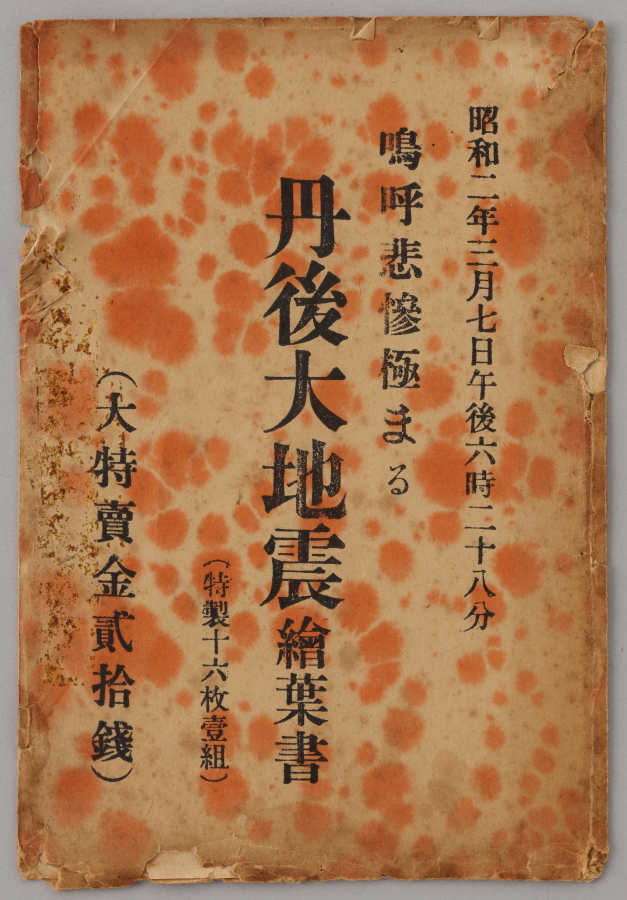 昭和二年三月七日午後六時二十八分
嗚呼悲慘極まる
丹後大地震繪葉書
（特製十六枚壹組）
（大特賣金貳拾錢）